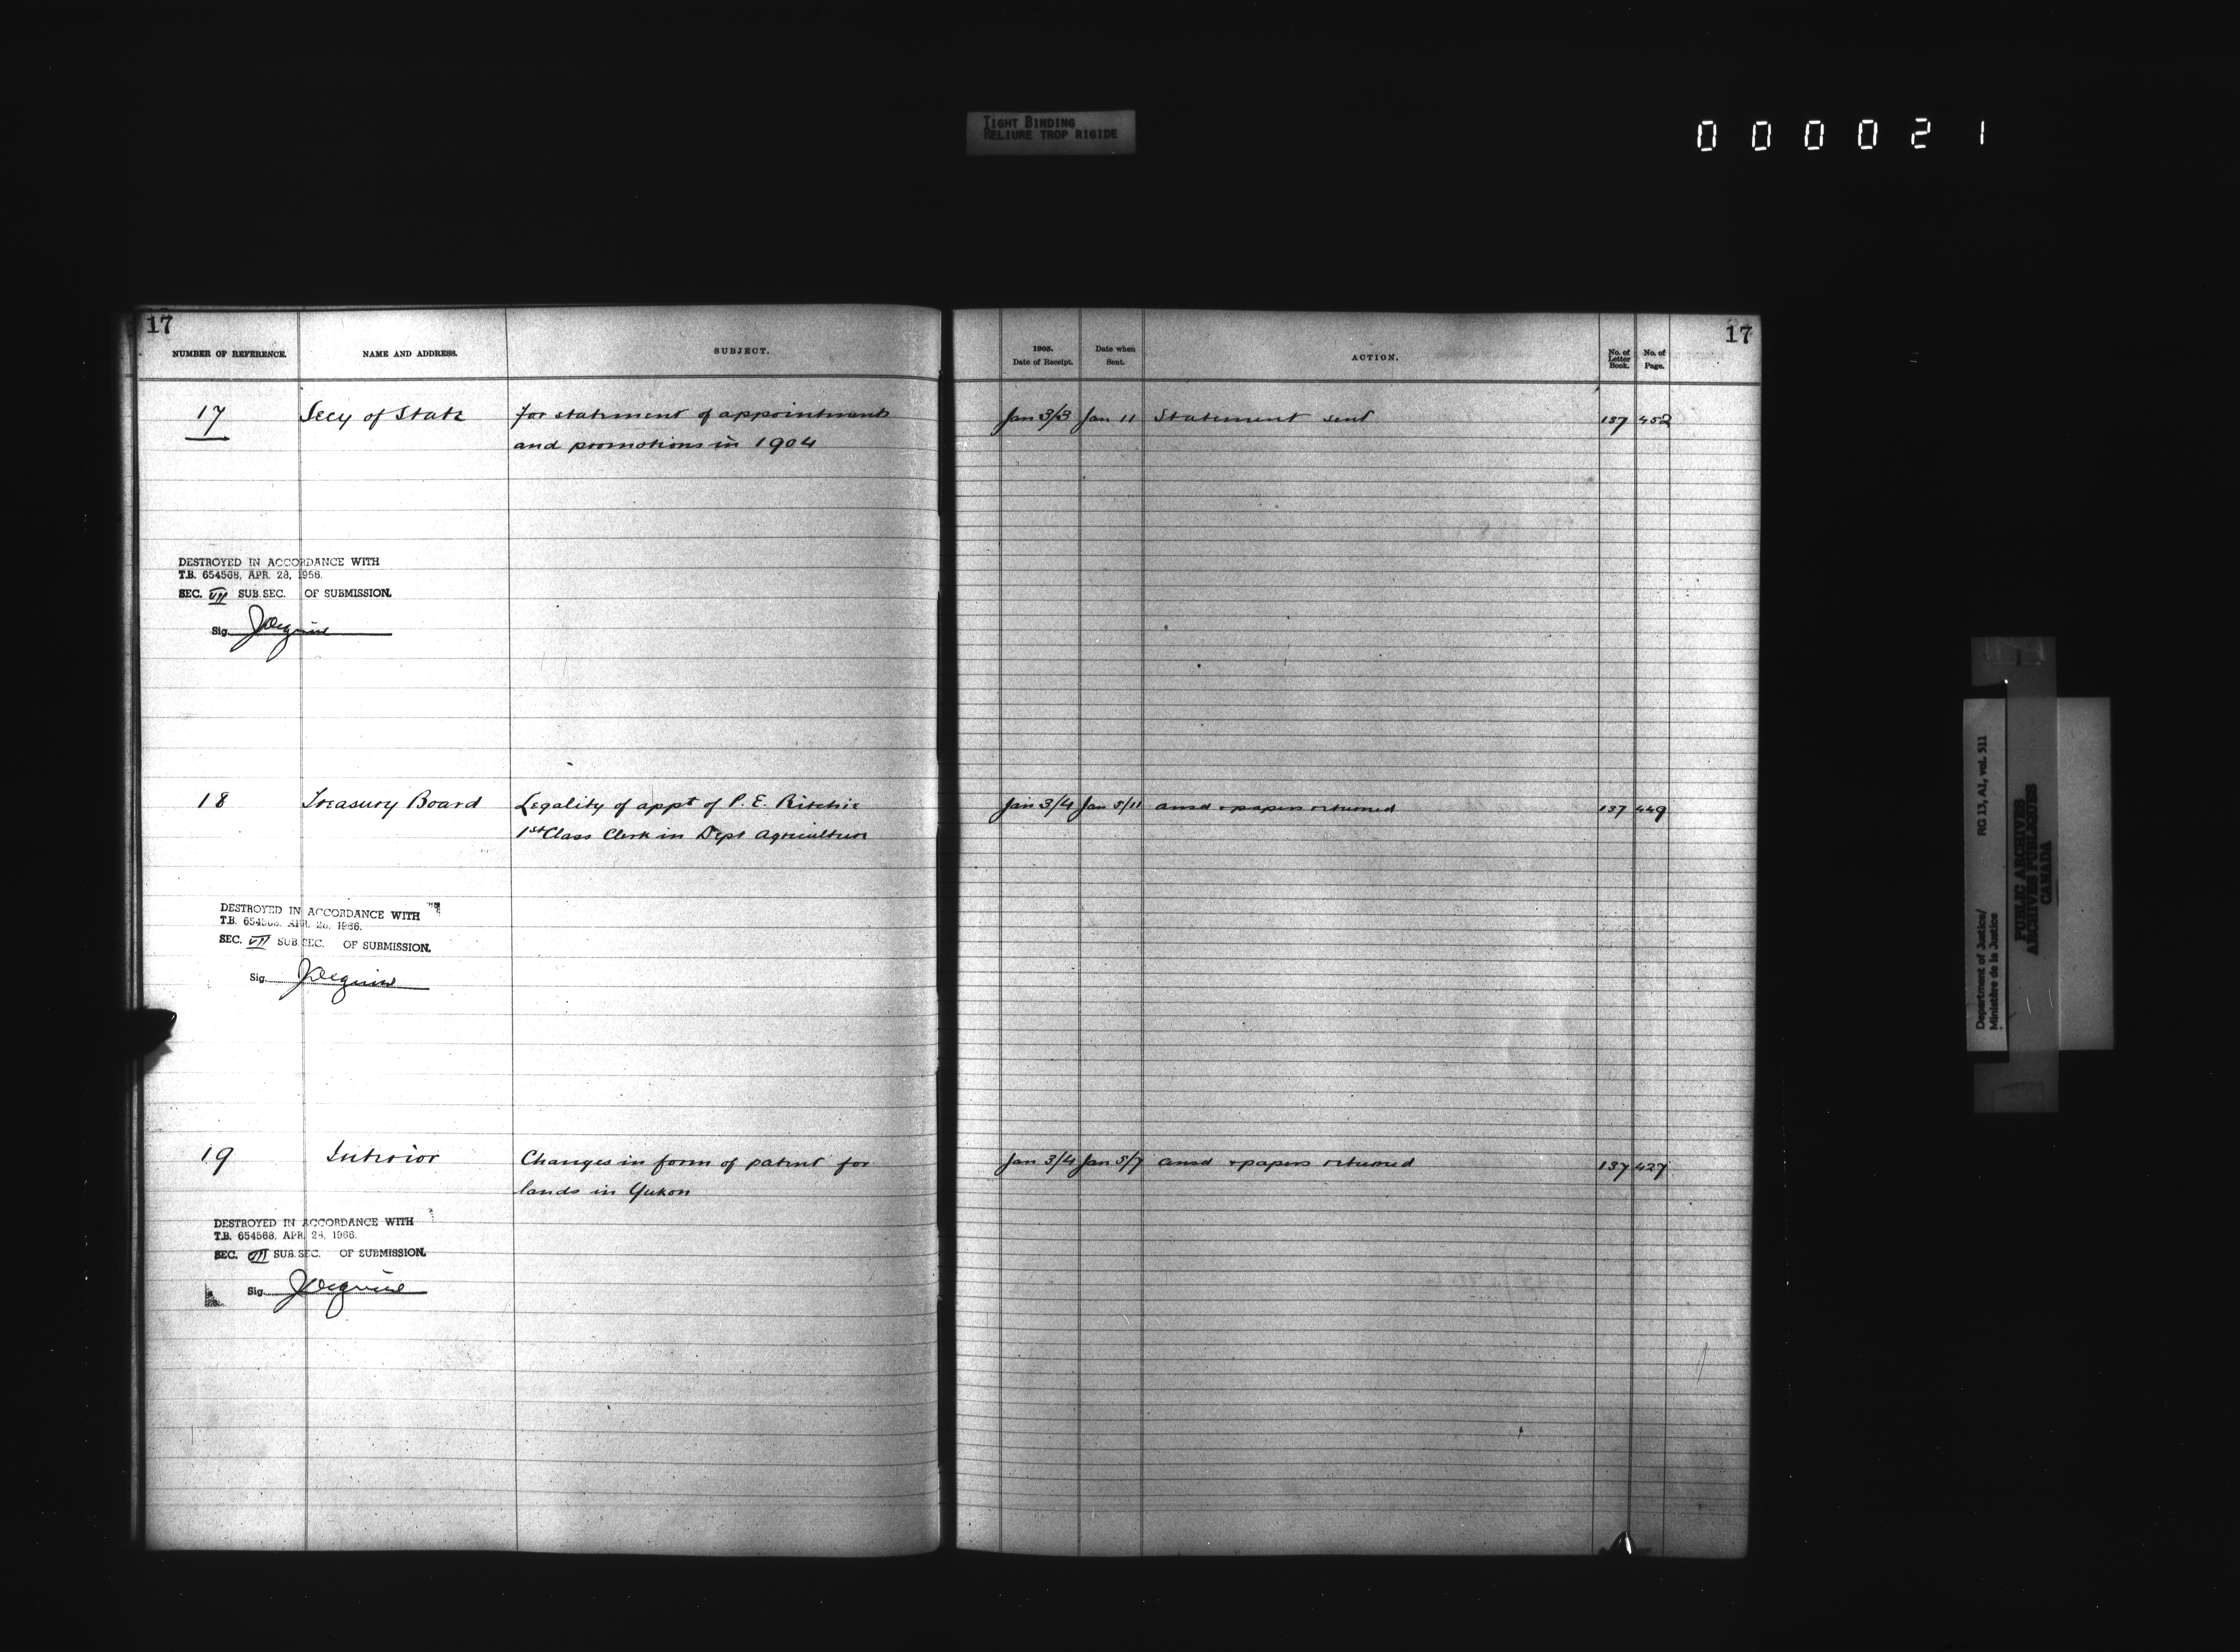 TIGHT BINDING
RELIURE TROP RIGIDE
000021
17
NUMBER OF REFERENCE.
NAME AND ADDRESS.
SUBJECT.
17 Secy of State for statement of appointments
and promotions in 1904
DESTROYED IN ACCORDANCE WITH
T.B. 654568, APR. 28, 1966.
SEC. VII SUB.SEC. OF SUBMISSION.
Sig.
18 Treasury Board Legality of appt of P. E. Ritchie
1st Class Clerk in Dept Agriculture
DESTROYED IN ACCORDANCE WITH
T.B. 654568, APR. 28, 1966.
SEC. VII SUB.SEC. OF SUBMISSION.
Sig.
19 Interior Changes in form of patent for
lands in Yukon
DESTROYED IN ACCORDANCE WITH
T.B. 654568, APR. 28, 1966.
SEC. VII SUB.SEC. OF SUBMISSION.
Sig.
17
1905.
Date of Receipt.
Date when
Sent.
ACTION.
No. of
Letter
Book.
No. of
Page.
Jan 3/3 Jan 11 Statement sent 137 452
Jan 3/4 Jan 5/11 ansd & papers returned 137 449
Jan 3/4 Jan 5/7 ansd & papers returned 137 427
Department of Justice/ RG 13, A1, vol. 511
Ministère de la Justice
PUBLIC ARCHIVES
ARCHIVES PUBLIQUES
CANADA